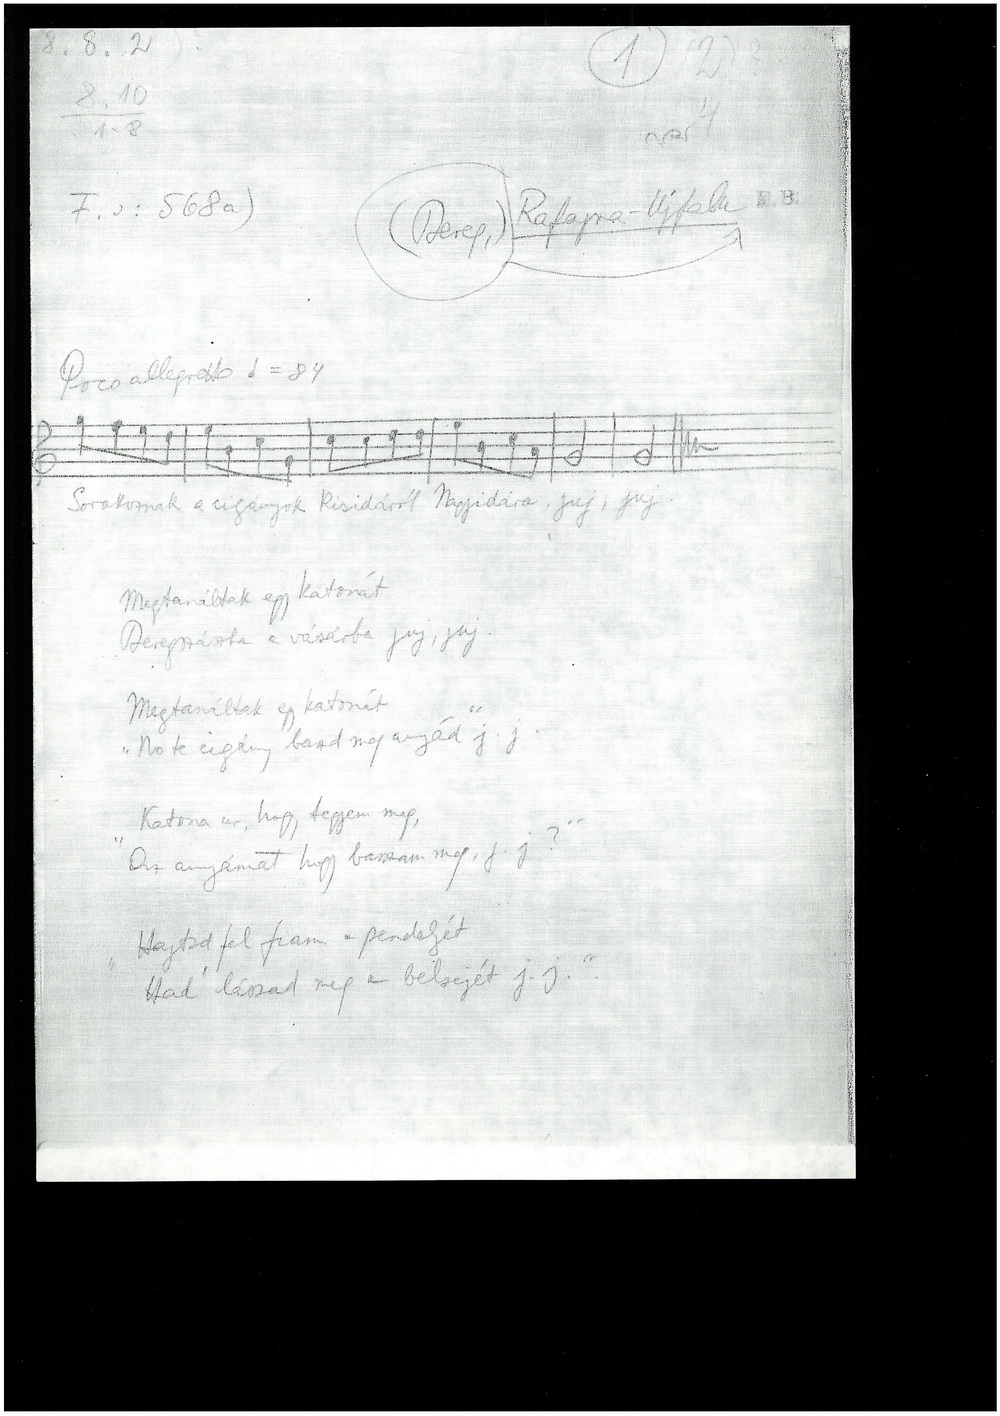 8. 8. 2
1 (2)
8. 10
1-8
var 4
F. s: 568a)
(Bereg,) Rafajna-Újfalu B.B.
Poco allegretto = 84
Sorakoznak a cigányok Kisidáról Nagyidára, juj, juj.
Megtanáltak egy katonát
Beregszászba a vásárba juj, juj.
Megtanáltak egy katonát
„No te cigány baszd meg anyád" j. j.
„Katona úr, hogy tegyem meg,
Az anyámat hogy basszam meg, j. j.?"
„Hajtsd fel fiam a pendeljét
Had' lássad meg a belsejét j. j.".